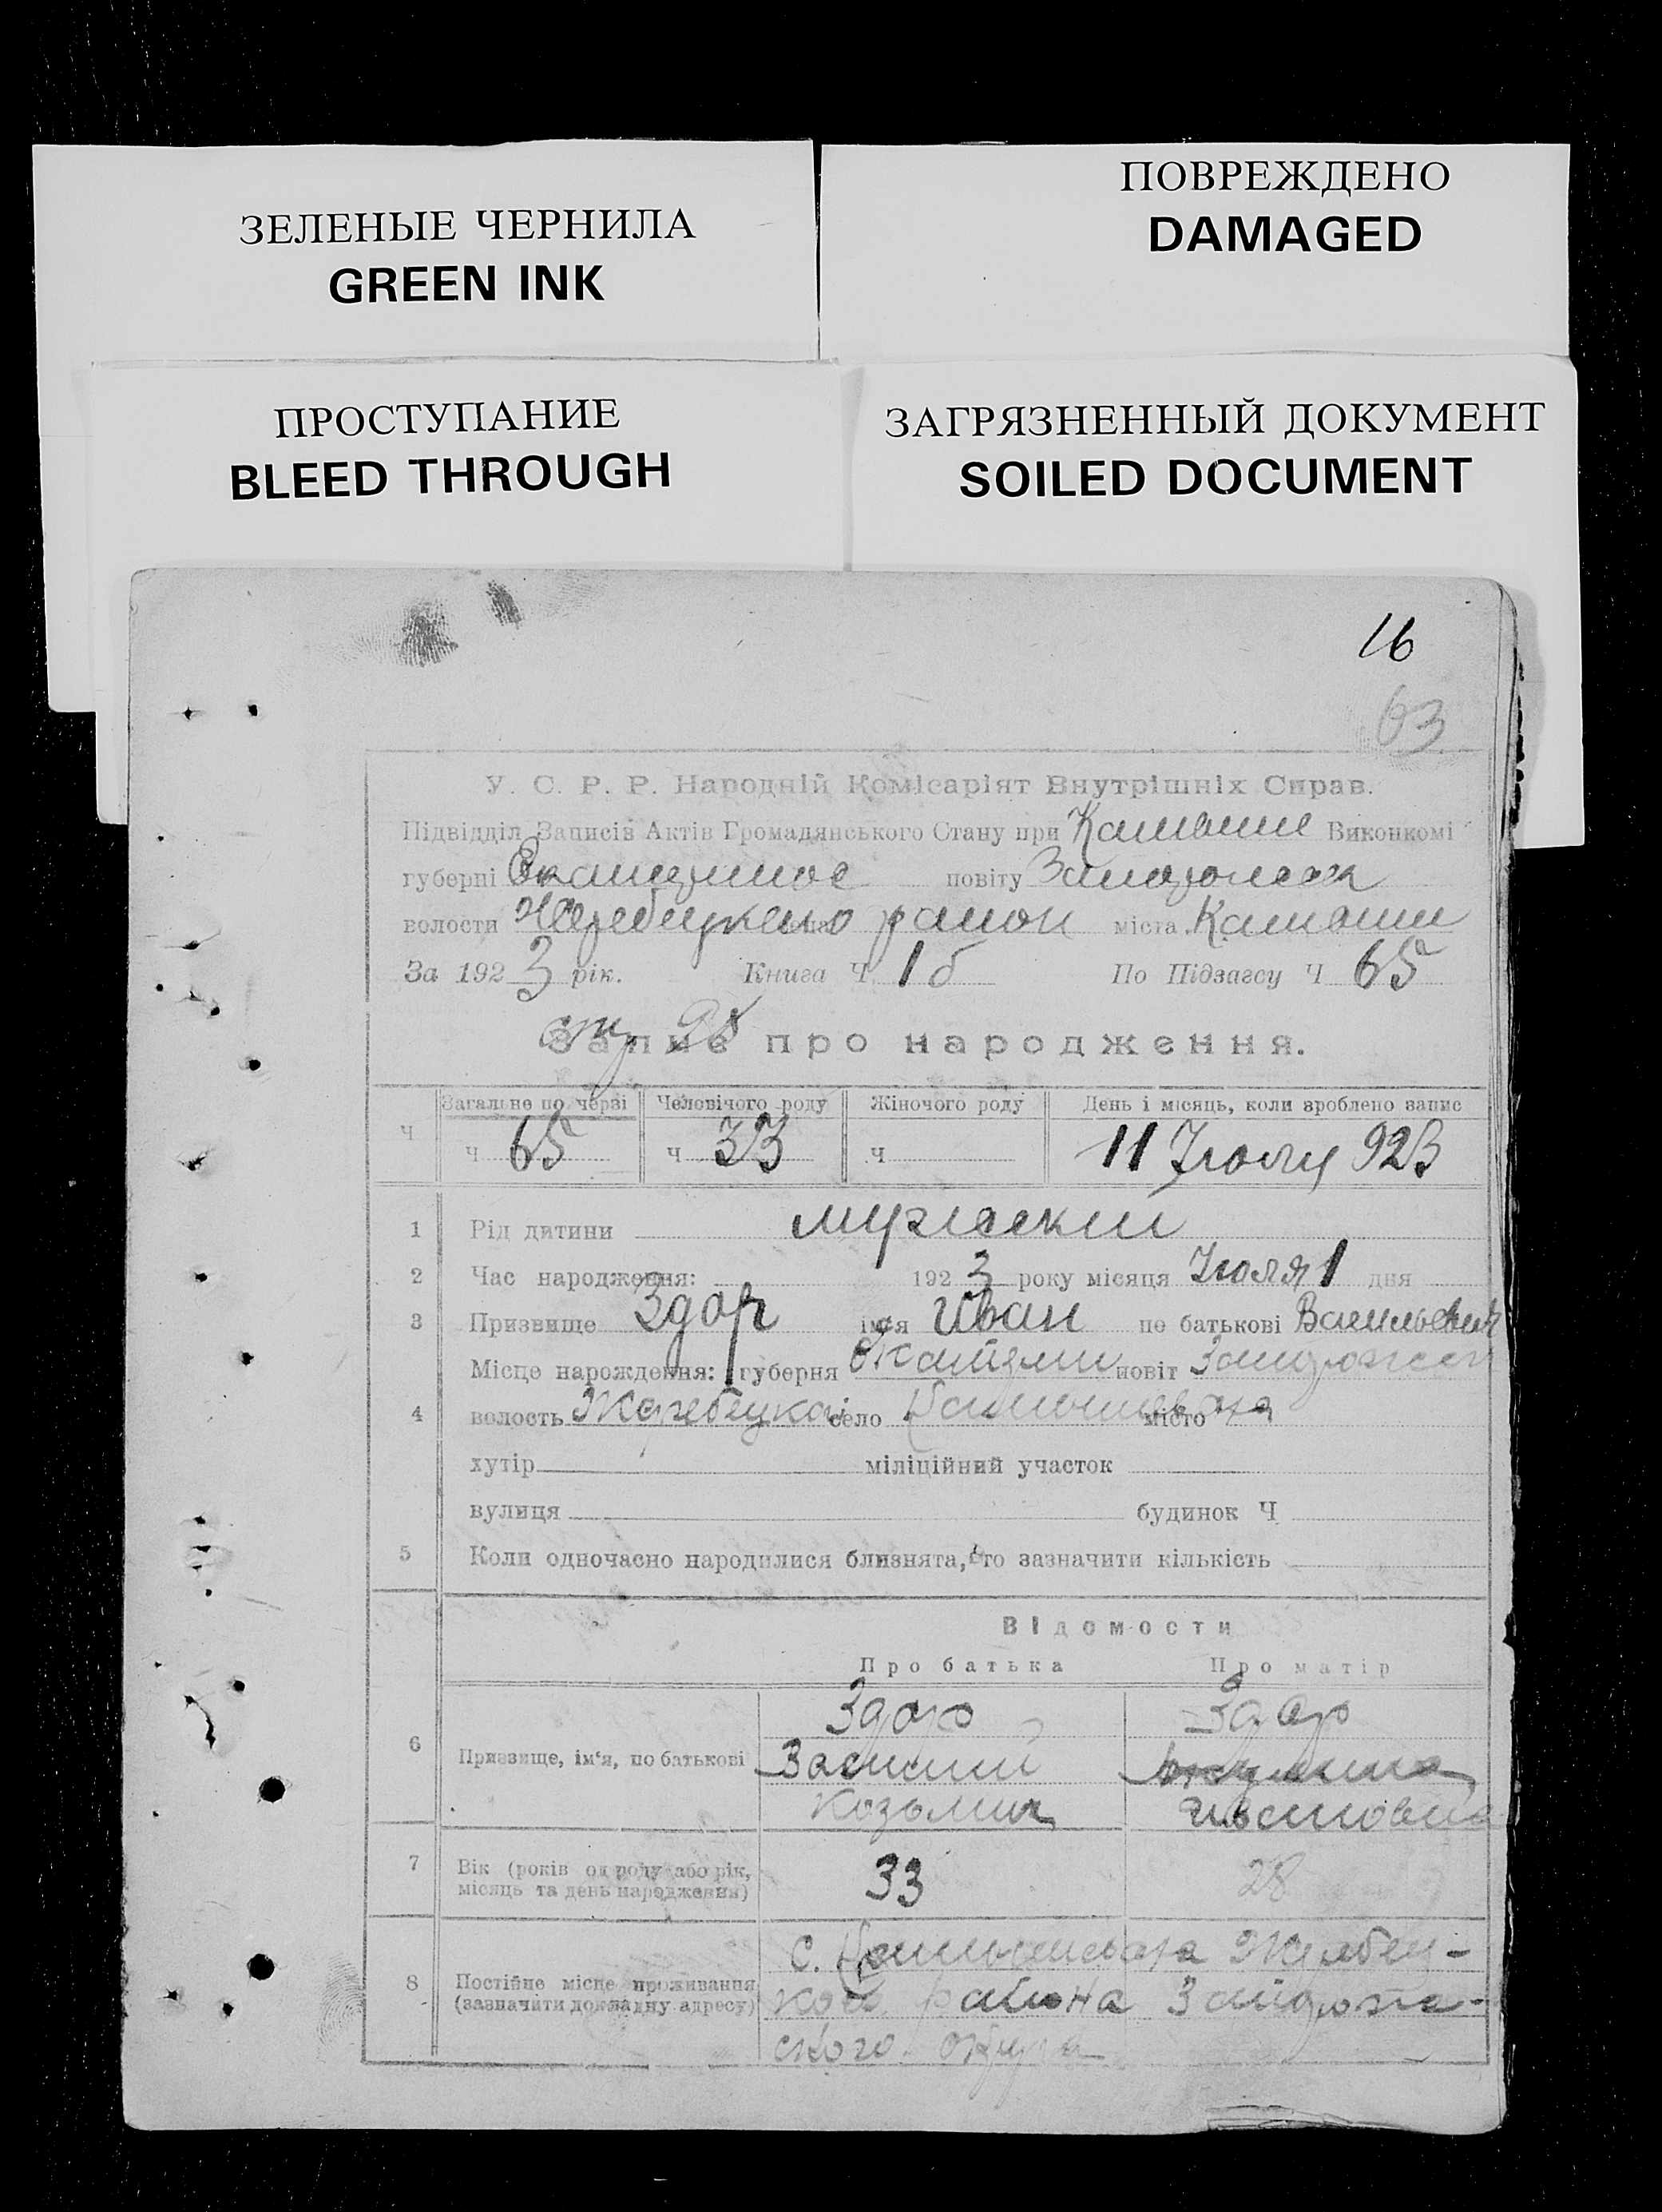 ЗЕЛЕНЫЕ ЧЕРНИЛА
GREEN INK
ПОВРЕЖДЕНО
DAMAGED
ПРОСТУПАНИЕ
BLEED THROUGH
ЗАГРЯЗНЕННЫЙ ДОКУМЕНТ
SOILED DOCUMENT
16
63
У. С. Р. Р. Народній Комісаріят Внутрішніх Справ.
Підвідділ Записів Актів Громадянського Стану при Виконкомі
губерні повіту
волости район міста
За 1923 рік. Книга Ч 1б По Підзагсу Ч 65
Запис про народження.
Загальне по черзі Чоловічого роду Жіночого роду День і місяць, коли зроблено запис
Ч ч 65 ч 33 ч 11 Июля 923
1 Рід дитини мужский
2 Час народження: 1923 року місяця Июля 1 дня
3 Призвище Здор ім'я Иван по батькові Васильевич
Місце народження: губерня повіт
4 волость Жеребецкой село місто
хутір міліційний участок
вулиця будинок Ч
5 Коли одночасно народилися близнята, то зазначити кількість
Відомости
Про батька Про матір
Здор Здор
6 Призвище, ім'я, по батькові Василий
Козьмич Ивановна
7 Вік (років од роду або рік, 33 28
місяць та день народження)
с. Жеребец-
8 Постійне місце проживання
(зазначити докладну адресу) кой района Запорож-
ского округа